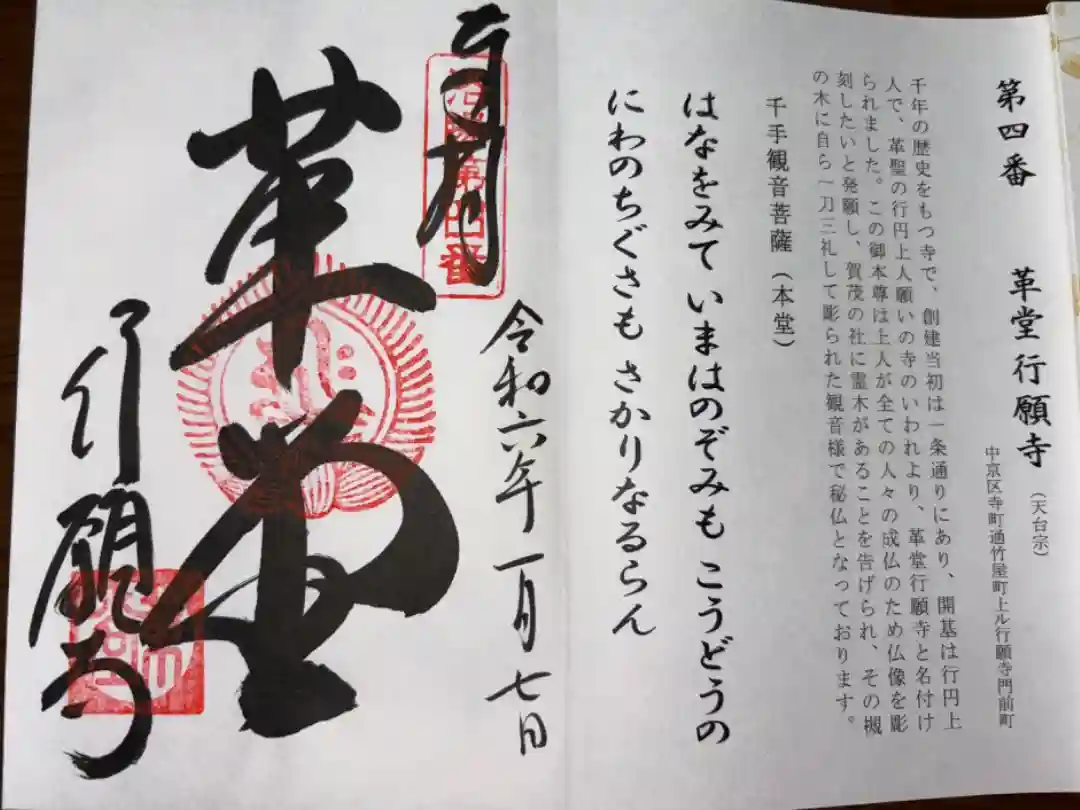 第四番 革堂行願寺(天台宗)
中京区寺町通竹屋町上ル行願寺門前町
千年の歴史をもつ寺で、創建当初は一条通りにあり、開基は行円上
人で、革聖の行円上人願いの寺のいわれより、革堂行願寺と名付け
られました。この御本尊は上人が全ての人々の成仏のため仏像を彫
刻したいと発願し、賀茂の社に霊木があることを告げられ、その槻
の木に自ら一刀三礼して彫られた観音様で秘仏となっております。
千手観音菩薩(本堂)
はなをみて いまはのぞみも こうどうの
にわのちぐさも さかりなるらん
奉拝
洛陽第四番
令和六年一月七日
革堂
行願寺